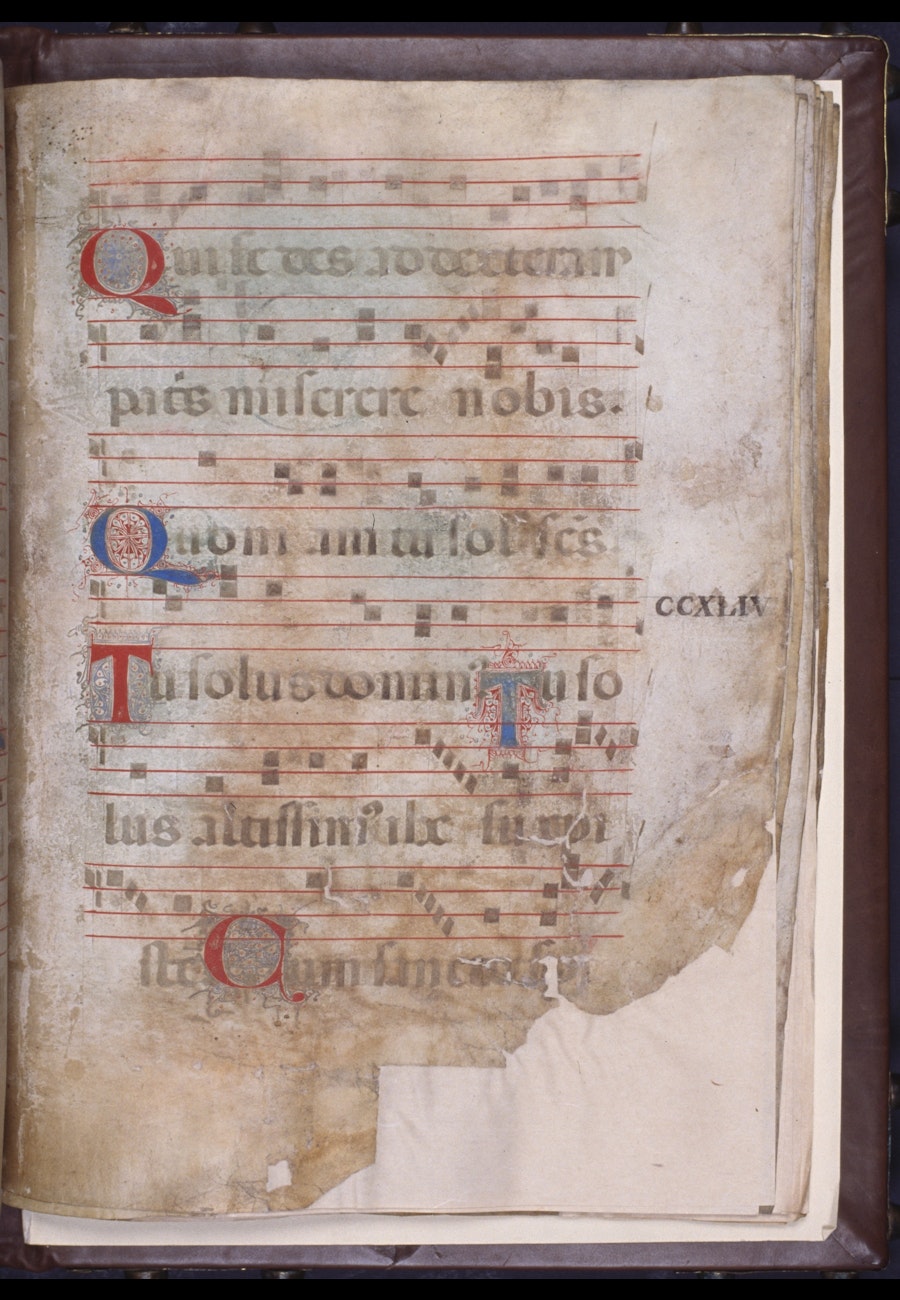 Qui se des ad dexteram
patris miserere nobis.
Quoniam tu solus scs.
CCXLIV
Tu solus dominus Tu so
lus altissimus ihc
ste Cum sancto